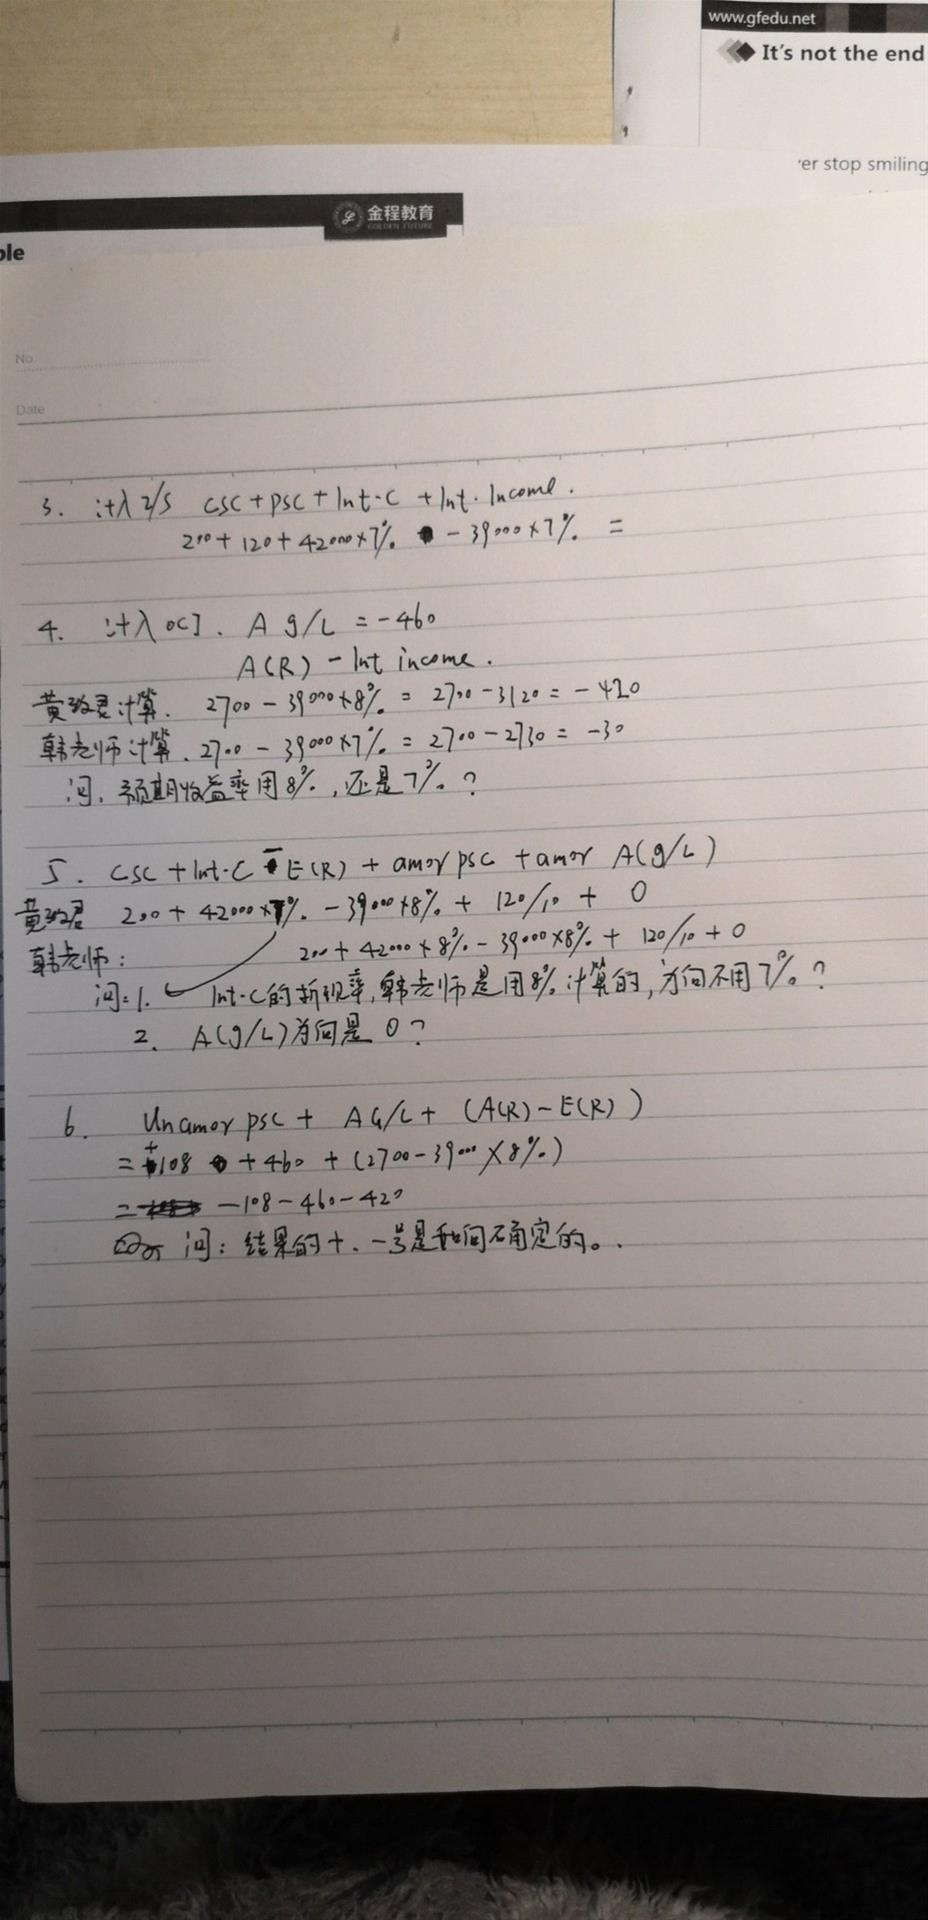 www.gfedu.net
It's not the end
er stop smiling
金程教育
GOLDEN FUTURE
ple
No.
Date
3. 计入I/S CSC+PSC+Int·C +Int·Income.
200+120+42000×7% -39000×7% =
4. 计入OCI. A g/L = -460
A(R) - Int income.
黄致君计算. 2700-39000×8% = 2700-3120 = -420
韩老师计算. 2700-39000×7% = 2700-2730 = -30
问. 预期收益率用8%, 还是7%?
5. CSC+Int·C - E(R) + amor psc + amor A(g/L)
黄致君 200 + 42000×7% - 39000×8% + 120/10 + 0
韩老师: 200 + 42000×8% - 39000×8% + 120/10 + 0
问:1. Int·C的折现率,韩老师是用8%计算的,为何不用7%?
2. A(g/L)为何是0?
6. Unamor psc + AG/L + (A(R)-E(R))
= +108 +460 + (2700-39000×8%)
= -108-460-420
问: 结果的+、-号是如何确定的。